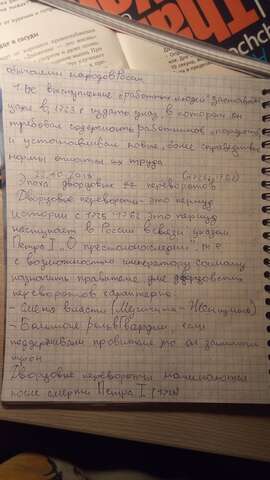 обычаями народов России
1. Все выступление "работных людей" заставили
царя в 1723 г издать указ, в котором он
требовал содержать работников "порядочно
и устанавливал новые, более справедливые
нормы оплаты их труда
(1725-1762)
Эпоха дворцовых переворотов
Дворцовые перевороты - это период
истории с 1725-1762, это период
наступает в России в связи указом
Петра I "О престолонаследии", т.е
с возможностью императору самому
назначить правителя для дворцовых
переворотов характерно
- Смена власти (Мужчина - Женщина)
- Большая роль Гвардии, если
поддерживали правителя то он занимал
трон
Дворцовые перевороты начинаются
после смерти Петра I